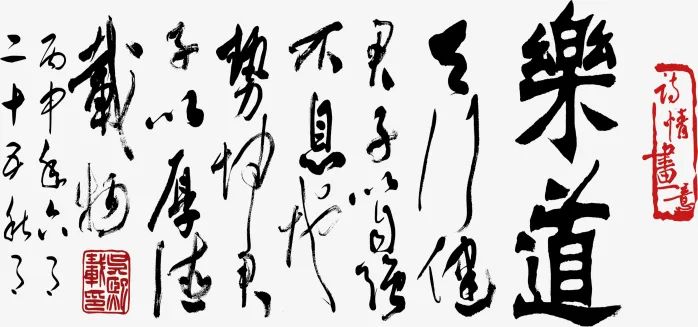 詩情畫意
樂道
天行健
君子以自強
不息地
勢坤君
子以厚德
載物
丙申年六月
二十五秋月
吳熙載印